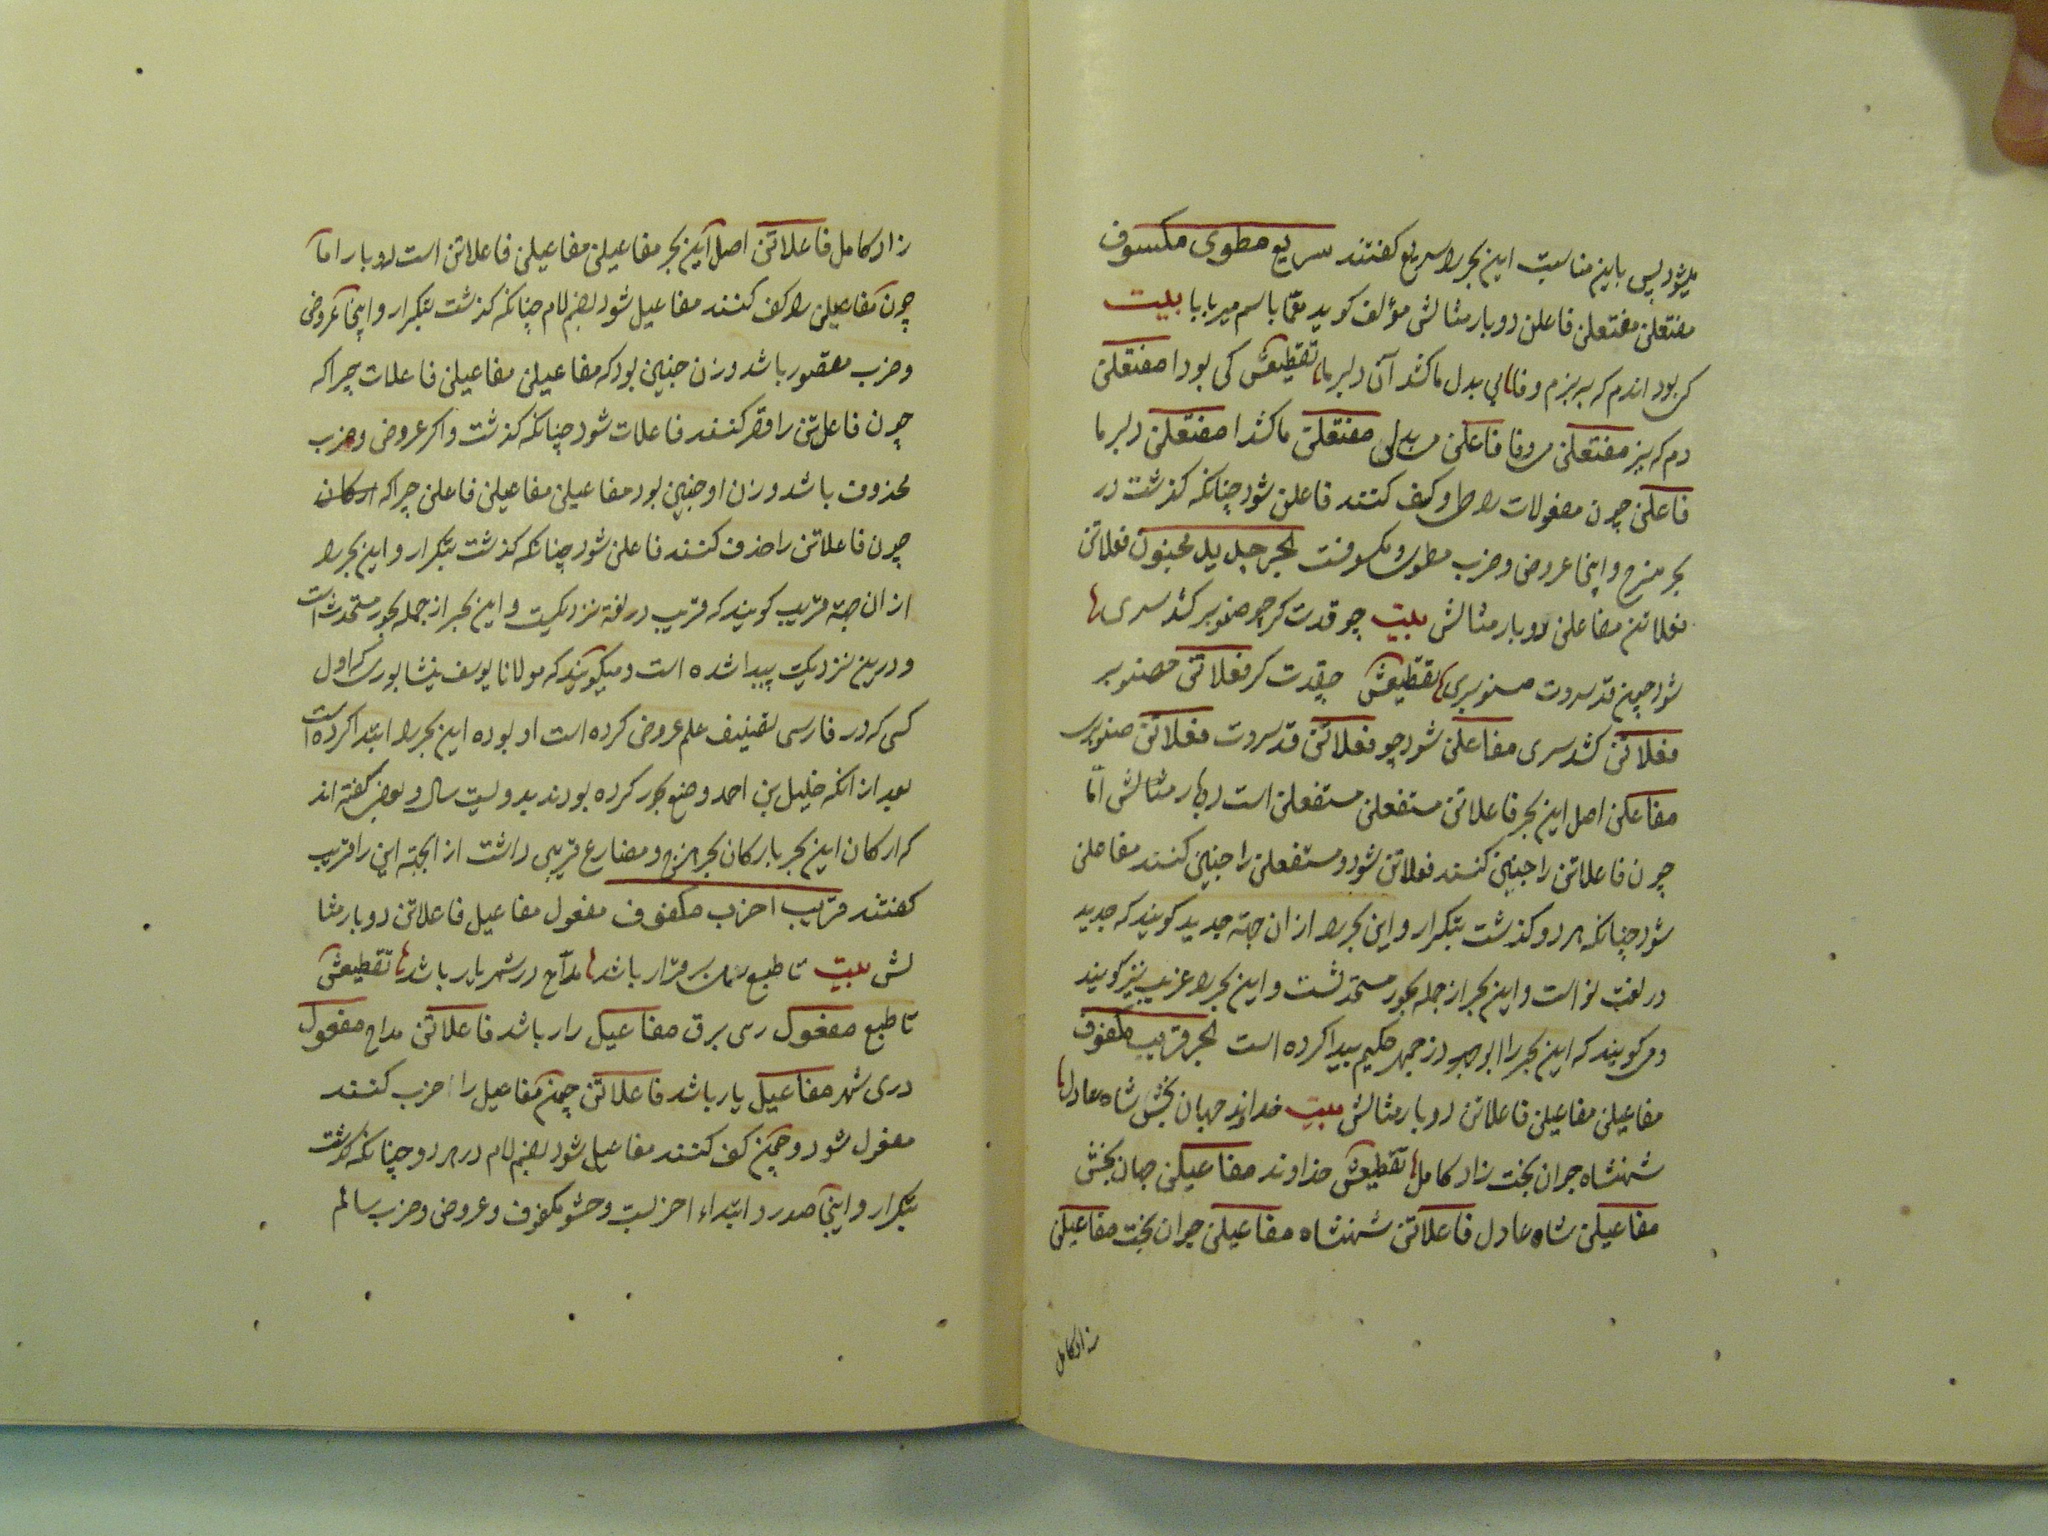 میشود پس باین مناسبت این بحر را سریع کفتند سریع مطوی مکسوف
مفتعلن مفتعلن فاعلن دوبار مثالش مؤلف کوید معمّا باسم میر بابا بیت
کی بود اندم که ببزم وفا بی بدل ما کشد آن دلبر ما تقطیعش کی بود ا مفتعلن
دم که ببز مفتعلن م وفا فاعلن بی بدلی مفتعلن ما کشدا مفتعلن دلبر ما
فاعلن چون مفعولات را طی و کسف کنند فاعلن شود چنانکه کذشت در
بحر منسرح و اینجا عروض و ضرب مطوی و مکسوفست بحر جدید مخبون فعلاتن
فعلاتن مفاعلن دوبار مثالش بیت چو قدت کرچه صنوبر کشد سری
شود چون قد سروت صنوبری تقطیعش چو قدت کر فعلاتن چصنوبر
فعلاتن کشد سری مفاعلن شود چو فعلاتن قد سروت فعلاتن صنوبری
مفاعلن اصل این بحر فاعلاتن مستفعلن مستفعلن است دوبار مثالش امّا
چون فاعلاتن را خبن کنند فعلاتن شود و مستفعلن را خبن کنند مفاعلن
شود چنانکه هر دو کذشت بتکرار و این بحر را از ان جهة جدید کویند که جدید
در لغت نو است و این بحر از جمله بحور مستحدثست و این بحر را غریب نیز کویند
و می کویند که این بحر را بوزرجمهر حکیم پیدا کرده است بحر قریب مکفوف
مفاعیلن مفاعیلن فاعلاتن دوبار مثالش بیت خداوند جهان بخش شاه عادل
شهنشاه جوان بخت راد کامل تقطیعش خداوند مفاعیلن جهان بخش
مفاعیلن شاه عادل فاعلاتن شهنشاه مفاعیلن جوان بخت مفاعیلن
راد کامل
راد کامل فاعلاتن اصل این بحر مفاعیلن مفاعیلن فاعلاتن است دوبار امّا
چون مفاعیلن را کف کنند مفاعیل شود بضم لام چنانکه کذشت بتکرار و اینجا عروض
و ضرب مقصور باشد وزن چنین بود که مفاعیلن مفاعیلن فاعلات چرا که
چون فاعلاتن را قصر کنند فاعلات شود چنانکه کذشت و اکر عروض و ضرب
محذوف باشد وزن او چنین بود مفاعیلن مفاعیلن فاعلن چرا که ارکان
چون فاعلاتن را حذف کنند فاعلن شود چنانکه کذشت بتکرار و این بحر را
از ان جهة قریب کویند که قریب در لغة نزدیکست و این بحر از جمله بحور مستحدث است
و درین نزدیکی پیدا شده است و میکویند که مولانا یوسف نیشابوری که اول
کسی که در فارسی تصنیف علم عروض کرده است او بوده این بحر را ابتدا کرده است
بعد از انکه خلیل بن احمد وضع بحور کرده بودند بدویست سال و بعضی کفته اند
که ارکان این بحر بارکان بحر هزج و مضارع قریبی داشت از انجهة این را قریب
کفتند قریب اخرب مکفوف مفعول مفاعیل فاعلاتن دوبار مثا
لش بیت تا طبع برقرار باشد مدّاح در شهریار باشد تقطیعش
تا طبع مفعول رهی برق مفاعیل رار باشد فاعلاتن مداح مفعول
دری شهر مفاعیل یار باشد فاعلاتن چون مفاعیل را اخرب کنند
مفعول شود و چون کف کنند مفاعیل شود بضم لام در هر دو چنانکه کذشت
بتکرار و اینجا صدر و ابتداء اخربست و حشو مکفوف و عروض و ضرب سالم